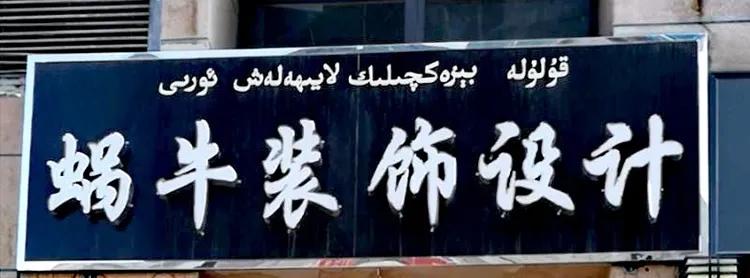 قۇلۇلە بېزەكچىلىك لايىھەلەش ئورنى
蜗牛装饰设计